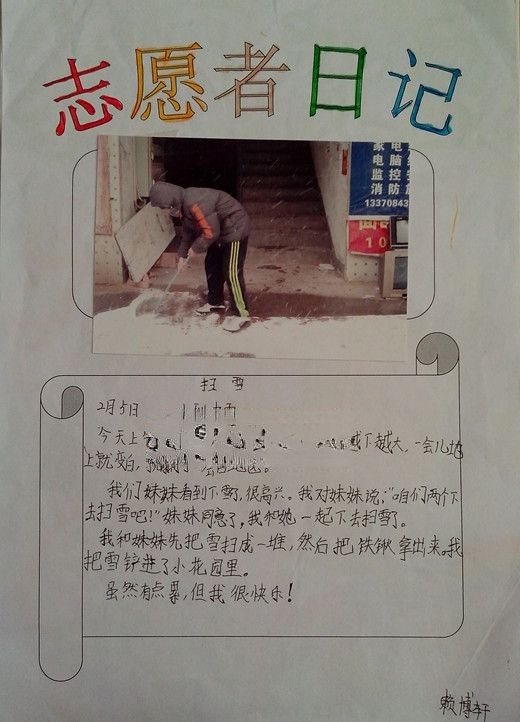 志愿者日记
家电
电脑
监控安
消防
1337084
10
扫雪
2月5日
今天上 下越大,一会儿地
上就变白,
我们妹妹看到下雪,很高兴。我对妹妹说:“咱们两个下
去扫雪吧!”妹妹同意了,我和她一起下去扫雪了。
我和妹妹先把雪扫成一堆,然后把铁锹拿出来,我
把雪铲进了小花园里。
虽然有点累,但我很快乐!
赖博轩